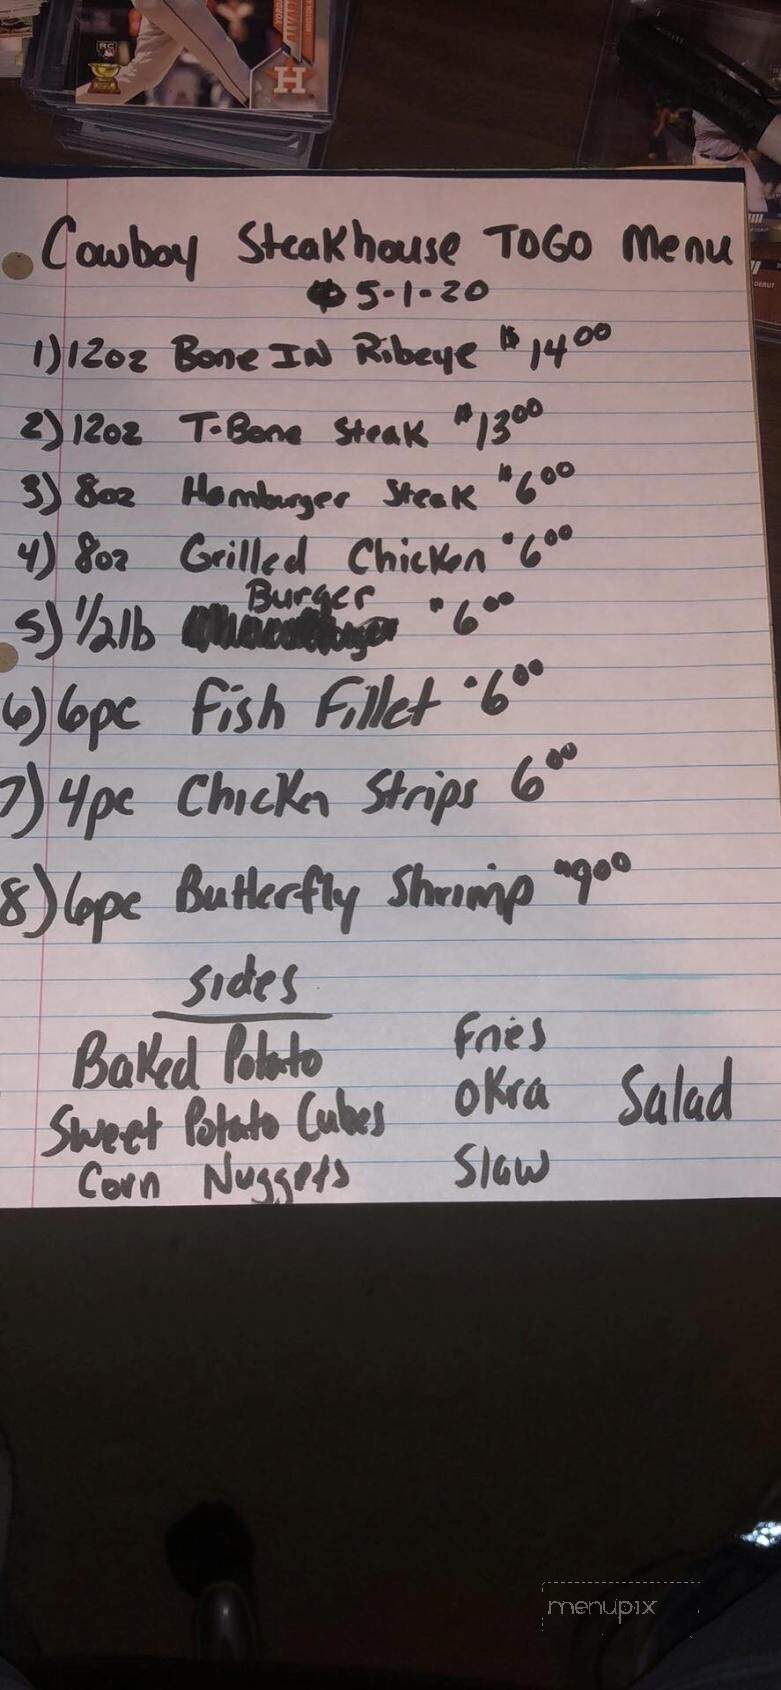 RC
H
Cowboy Steakhouse TOGO Menu
5-1-20
1) 12oz Bone IN Ribeye $14.00
2) 12oz T-Bone Steak $13.00
3) 8oz Hamburger Steak $6.00
4) 8oz Grilled Chicken $6.00
5) 1/2 lb Burger $6.00
6) 6pc Fish Fillet $6.00
7) 4pc Chicken Strips 6.00
8) 6pc Butterfly Shrimp $9.00
Sides
Baked Potato
Fries
Sweet Potato Cubes
Okra
Salad
Corn Nuggets
Slaw
menupix